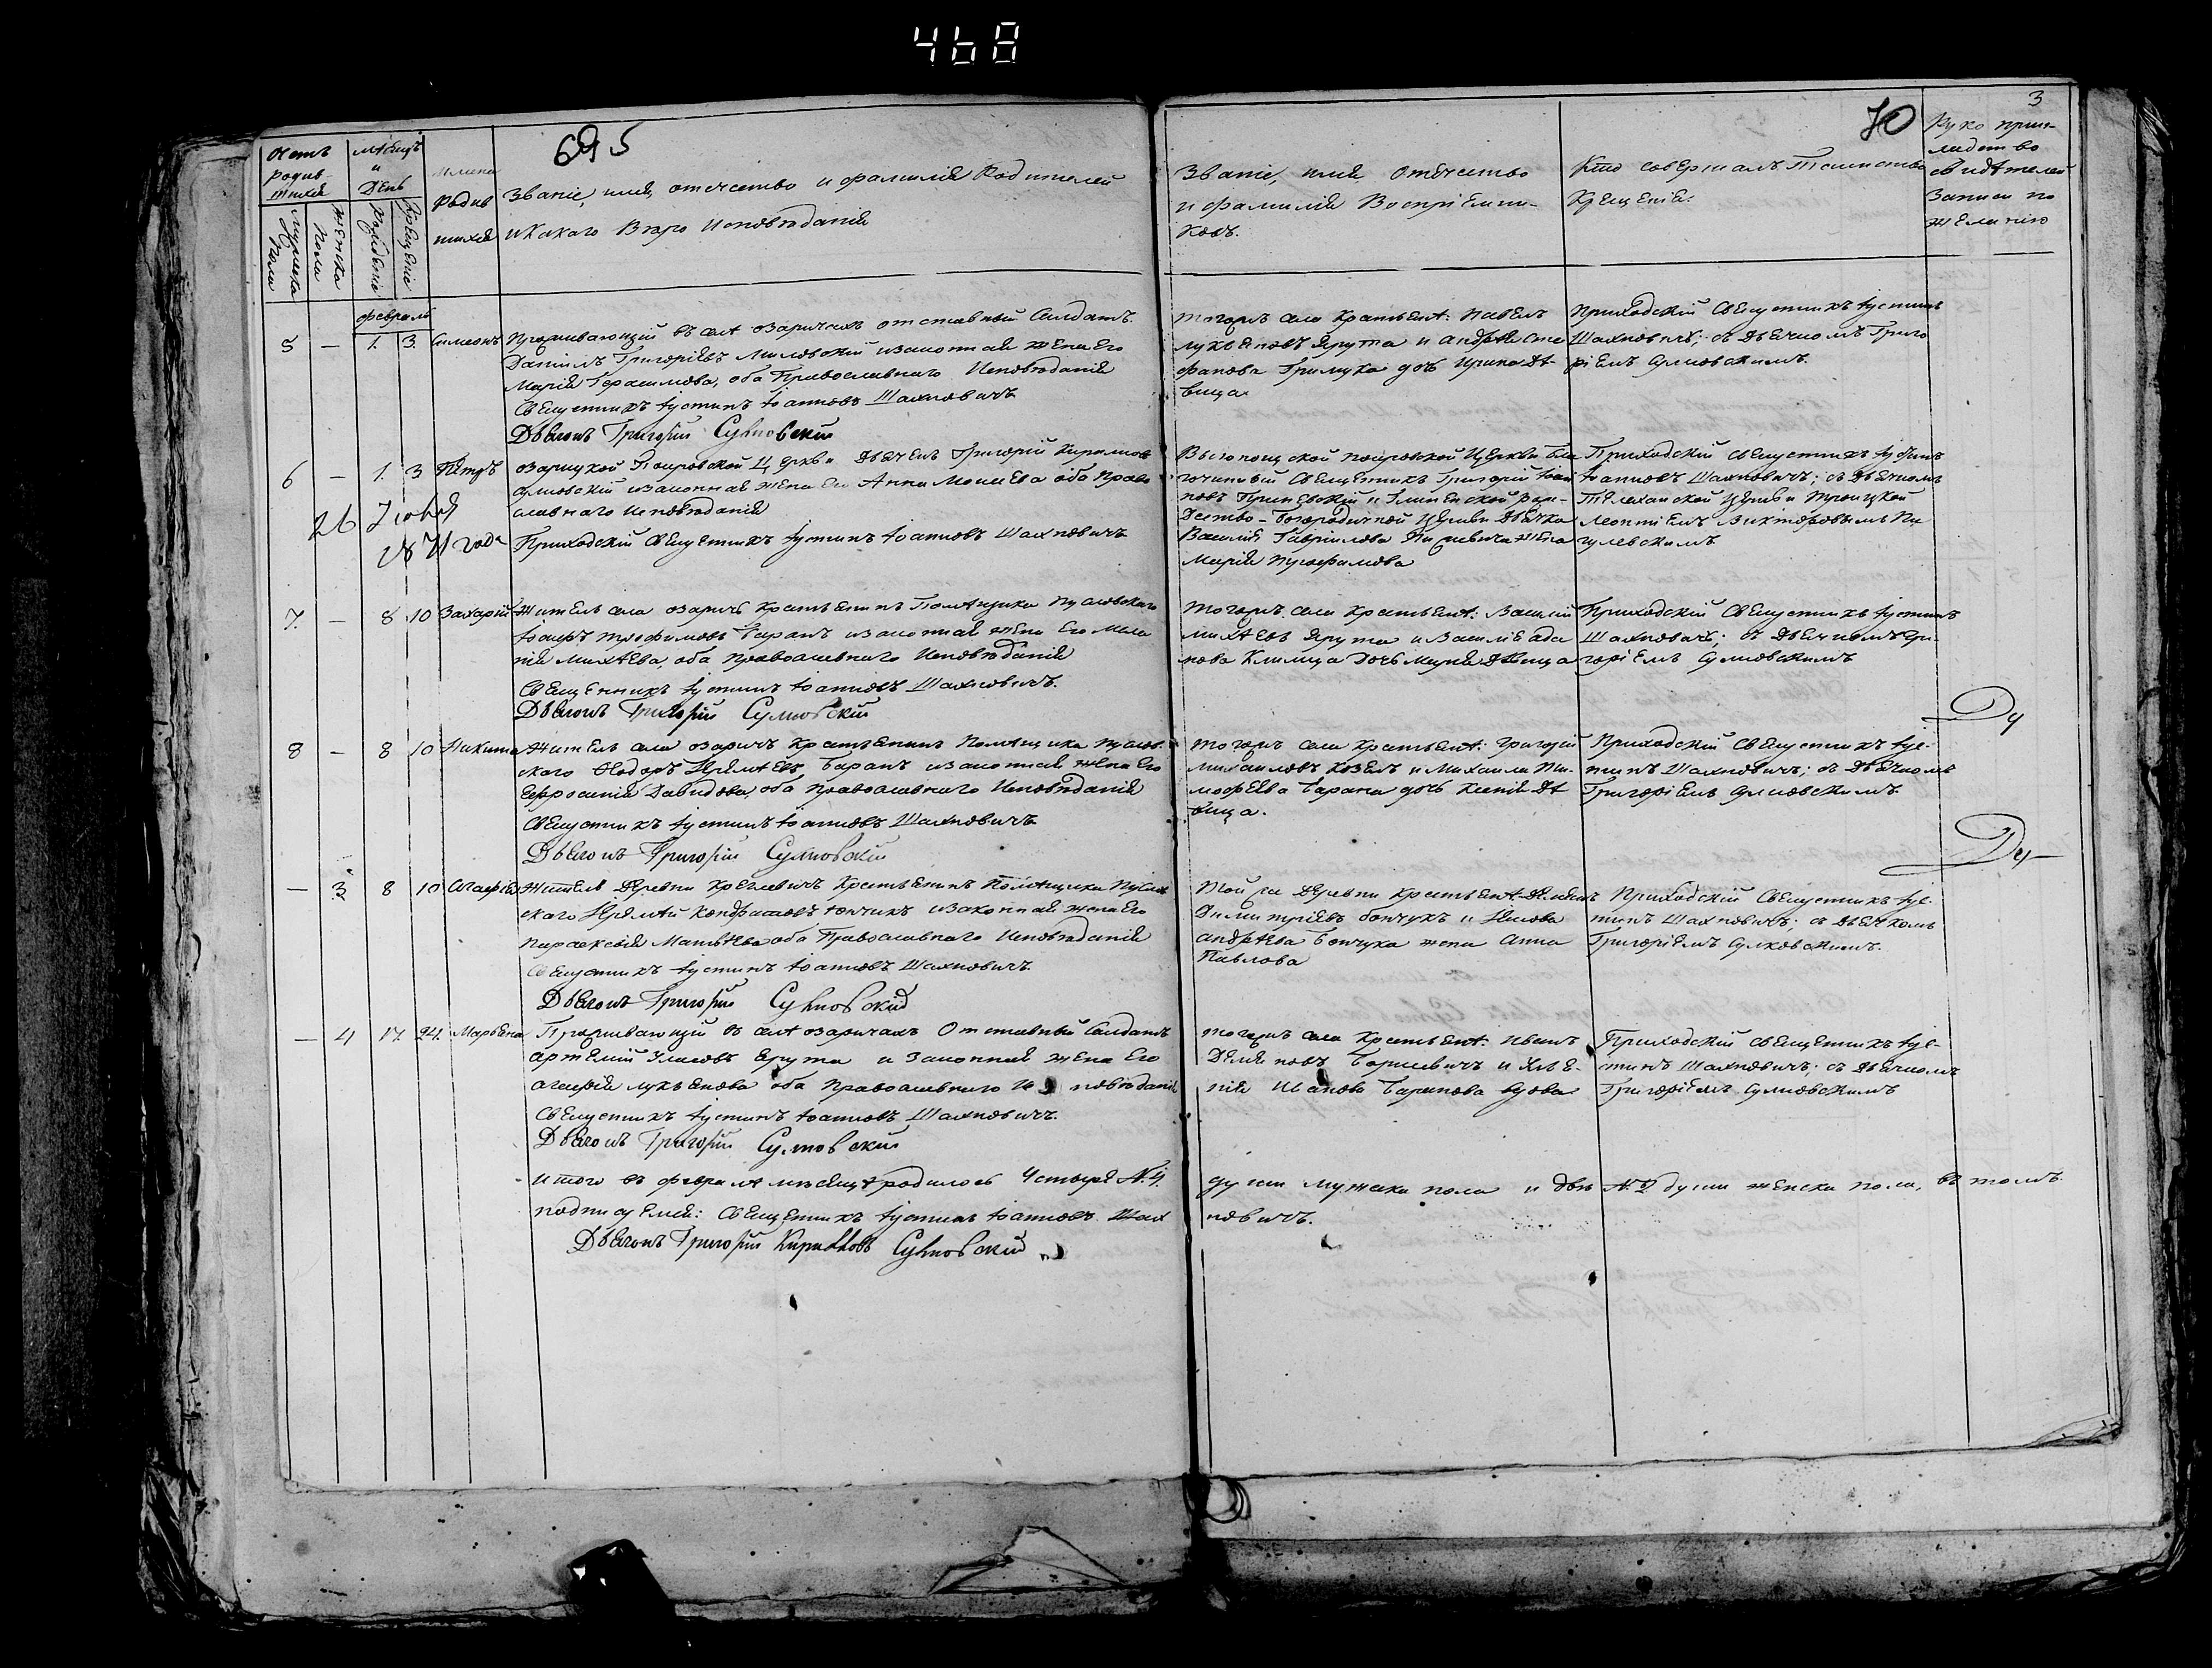 468
695
70
3
Счетъ родив-
шихся
Мужеска
пола
Женска
пола
Мѣсяцъ
и
День
Рожденіе
Крещеніе
Имена
Родив
шихся
Званіе, имя, отчество и фамилія Родителей
и Какого Вѣроисповѣданія
Званіе, имя, Отчество
и фамилія Воспріемни-
ковъ.
Кто совершалъ Таинство
Крещенія.
Руко прик-
ладство
свидѣтелей
Записи по
желанію
Февраль
5 — 1. 3. Симеонъ
Проживающій въ селѣ Озаричахъ отставный Салдатъ
Даніилъ Григоріевъ Миловскій и законная жена Его
Марія Герасимова, оба Православнаго Исповѣданія
Священникъ Іустинъ Іоанновъ Шахновичъ
Дьячокъ Григорій Сулковскій
тогожъ села Крестьянѣ: Павелъ
Лукьяновъ Ярута и Андрея Сте
фанова Гримука дочь Ирина дѣ-
вица
Приходскій Священникъ Іустинъ
Шахновичъ; съ дьячкомъ Григо
ріемъ Сулковскимъ
6 — 1. 3 Петръ
Озарицкой Покровской Церкви Дьячекъ Григорій Кириловъ
Сулковскій и законная жена Его Анна Моисеева оба Право
славнаго Исповѣданія
Приходскій Священникъ Іустинъ Іоанновъ Шахновичъ
26 Іюня
1871 года
Покровской Церкви Бла
гочинный Священникъ Григорій Іоан
новъ
Рож-
дество-Богородичной Церкви Дьячка
Василія Гавріилова жена
Марія
Приходскій Священникъ Іустинъ
Іоанновъ Шахновичъ; съ Дьячкомъ
Телеханской Церкви Троицкой
Леонтіемъ Викторовымъ Пи
гулевскимъ
7. — 8 10 Захарій
Житель села Озаричъ Крестьянинъ Помѣщика Пусловскаго
Іосифъ Трофимовъ Таранъ и законная жена Его Мела
нія Михѣева, оба Православнаго Исповѣданія
Священникъ Іустинъ Іоанновъ Шахновичъ.
Дьячокъ Григорій Сулковскій
тогожъ села Крестьянѣ: Василій
Михѣевъ Ярута и Василія Ада
мова Климца Дочь Марія Дѣвица
Приходскій Священникъ Іустинъ
Шахновичъ; съ Дьячкомъ Гри-
горіемъ Сулковскимъ
8 — 8 10 Никита
Житель села Озаричъ Крестьянинъ Помѣщика Пуслов-
скаго Ѳедоръ Іеремѣевъ Таранъ и законная жена Его
Ефросинія Давидова, оба Православнаго Исповѣданія
Священникъ Іустинъ Іоанновъ Шахновичъ
Дьячокъ Григорій Сулковскій
тогожъ села Крестьянѣ: Григорій
Михайловъ Козелъ и Михаила Ти-
мофеева Тарана дочь Ксенія Дѣ
вица.
Приходскій Священникъ Іус-
тинъ Шахновичъ; съ Дьячкомъ
Григоріемъ Сулковскимъ
— 3. 8 10 Агафія
Житель Деревни Краглевичъ Крестьянинъ Помѣщика Пуслов
скаго Іеремѣй Кондратовъ Бончукъ и законная жена Его
Параскевія Матвѣева оба Православнаго Исповѣданія
Священникъ Іустинъ Іоанновъ Шахновичъ
Дьячокъ Григорій Сулковскій
Той же Деревни Крестьянѣ
Димитріевъ Бончукъ и Якова
Андрѣева Бончука жена Анна
Павлова
Приходскій Священникъ Іус-
тинъ Шахновичъ; съ Дьячкомъ
Григоріемъ Сулковскимъ.
— 4 17. 24. Марьяна
Проживающій въ селѣ Озаричахъ Отставный Салдатъ
Артемій Ярута и Законная жена Его
Агафія Лукьянова оба Православнаго Исповѣданія
Священникъ Іустинъ Іоанновъ Шахновичъ.
Дьячокъ Григорій Сулковскій
тогожъ села Крестьянѣ: Иванъ
Демяновъ Борисевичъ и
Иванова Таранова вдова
Приходскій Священникъ Іус-
стинъ Шахновичъ; съ Дьячкомъ
Григоріемъ Сулковскимъ
Ду
Ду
Итого въ Февралѣ мѣсяцѣ родилось Четыре N. 4. души мужеска пола и двѣ N. 2 души женска пола, въ томъ
подписуемся: Священникъ Іустинъ Іоанновъ Шахновичъ.
Дьячокъ Григорій Кириловъ Сулковскій